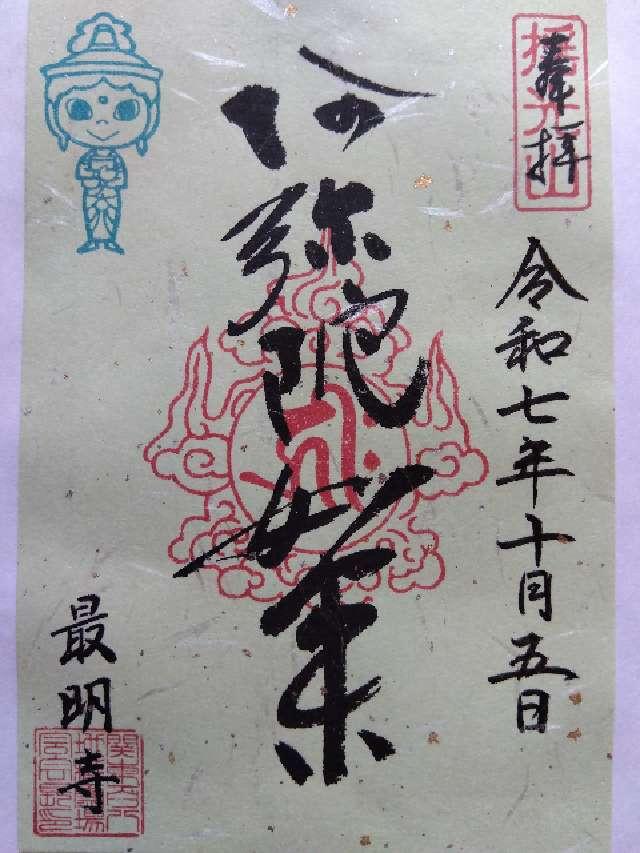 奉拝
瑶光山
令和七年十月五日
阿弥陀如来
最明寺